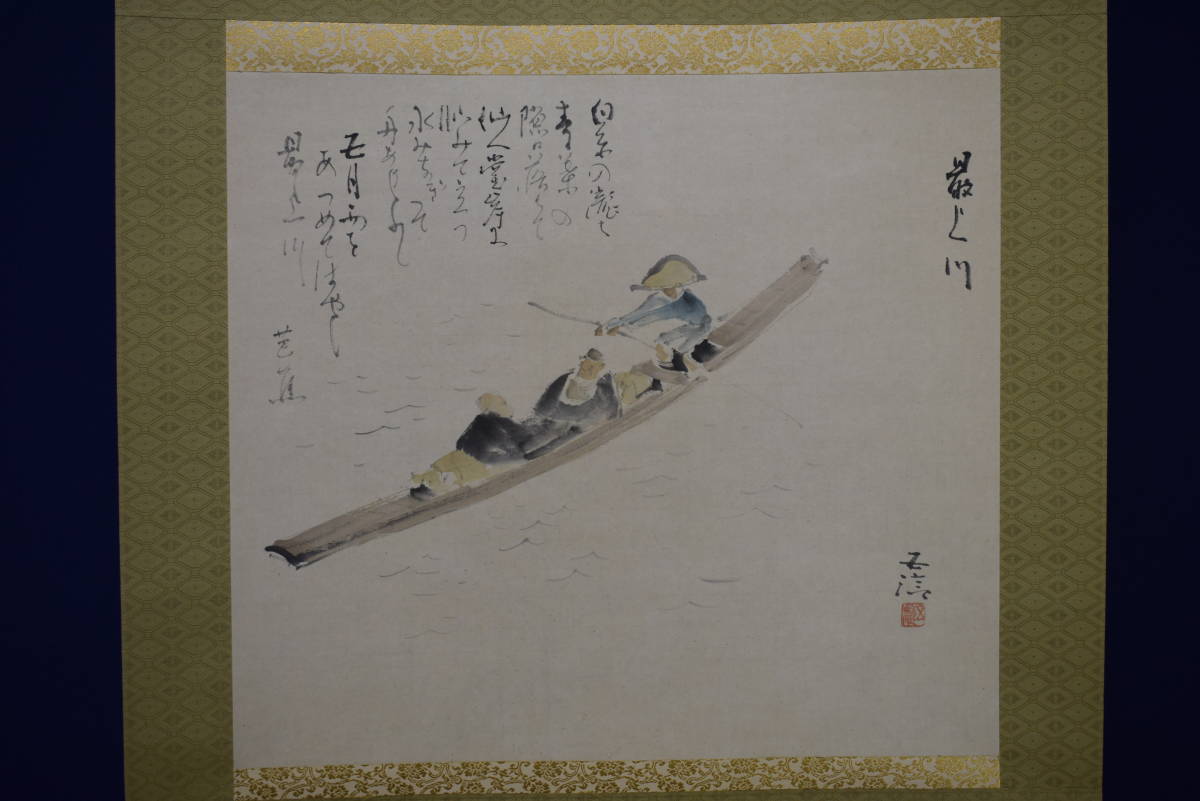 最上川
白糸の瀧は
青葉の
隙〻落て
仙人堂岸に
臨みて立つ
水みなぎつて
舟あやうし
五月雨を
あつめてはやし
最上川
芭蕉